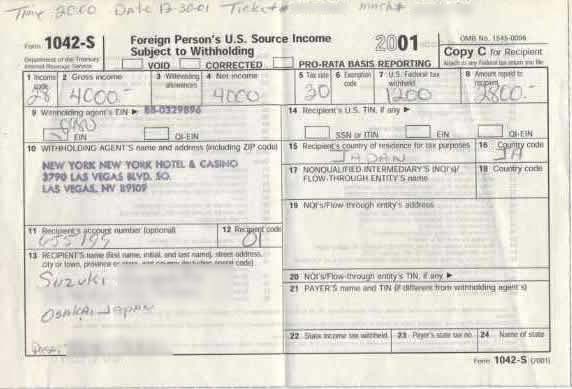 Time 20:00 Date 12-30-01 Ticket# Mach#
Form 1042-S
Department of the Treasury
Internal Revenue Service
Foreign Person's U.S. Source Income
Subject to Withholding
2001
OMB No. 1545-0096
Copy C for Recipient
Attach to any Federal tax return you file
VOID CORRECTED PRO-RATA BASIS REPORTING
1 Income code
28
2 Gross income
4000.-
3 Withholding allowances
4 Net income
4000
5 Tax rate
30
6 Exemption code
7 U.S. Federal tax withheld
1200
8 Amount repaid to recipient
2800.-
9 Withholding agent's EIN ▶ 88-0329896
EIN QI-EIN
14 Recipient's U.S. TIN, if any ▶
SSN or ITIN EIN QI-EIN
10 WITHHOLDING AGENT'S name and address (including ZIP code)
NEW YORK NEW YORK HOTEL & CASINO
3790 LAS VEGAS BLVD. SO.
LAS VEGAS, NV 89109
15 Recipient's country of residence for tax purposes
JAPAN
16 Country code
JA
17 NONQUALIFIED INTERMEDIARY'S (NQI's)/
FLOW-THROUGH ENTITY'S name
18 Country code
19 NQI's/Flow-through entity's address
11 Recipient's account number (optional)
12 Recipient code
01
13 RECIPIENT'S name (first name, initial, and last name), street address,
city or town, province or state, and country (including postal code)
Suzuki
OSAKA, JAPAN
20 NQI's/Flow-through entity's TIN, if any ▶
21 PAYER'S name and TIN (if different from withholding agent's)
22 State income tax withheld
23 Payer's state tax no.
24 Name of state
Form 1042-S (2001)